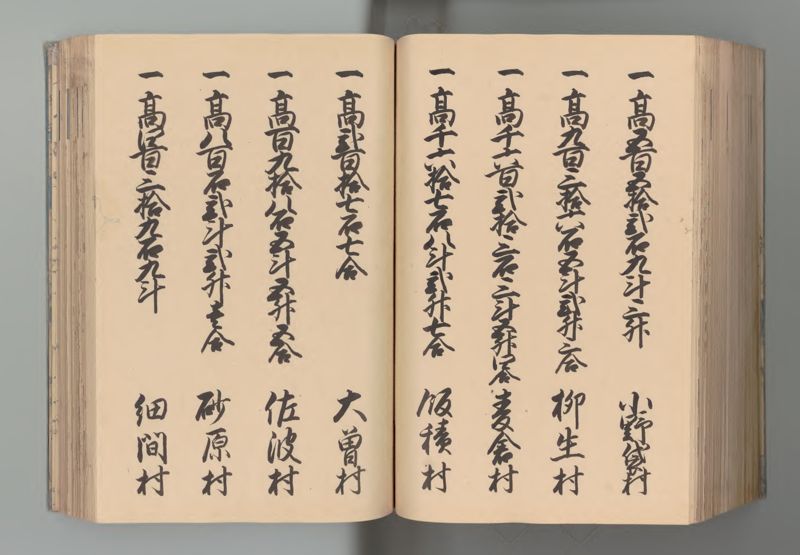 一高五百五拾弐石九斗三升 小野袋村
一高九百三拾六石五斗弐升三合 柳生村
一高千六百弐拾三石三斗五升四合 麦倉村
一高千六拾七石八斗弐升七合 飯積村
一高弐百拾七石七合 大曽村
一高百九拾八石五斗五升五合 佐波村
一高八百石弐斗弐升壱合 砂原村
一高四百三拾九石九斗 細間村